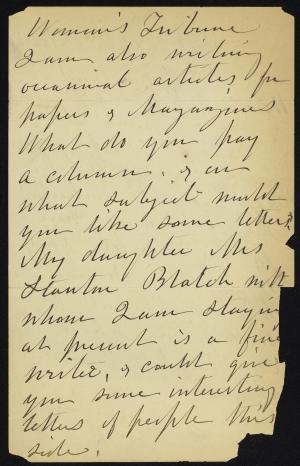 Woman's Tribune
I am also writing
occasional articles for
papers & Magazines
What do you pay
a column. & on
what subject would
you like some letters?
My daughter Mrs
Stanton Blatch with
whom I am staying
at present is a fine
writer, & could give
you some interesting
letters of people this
side.